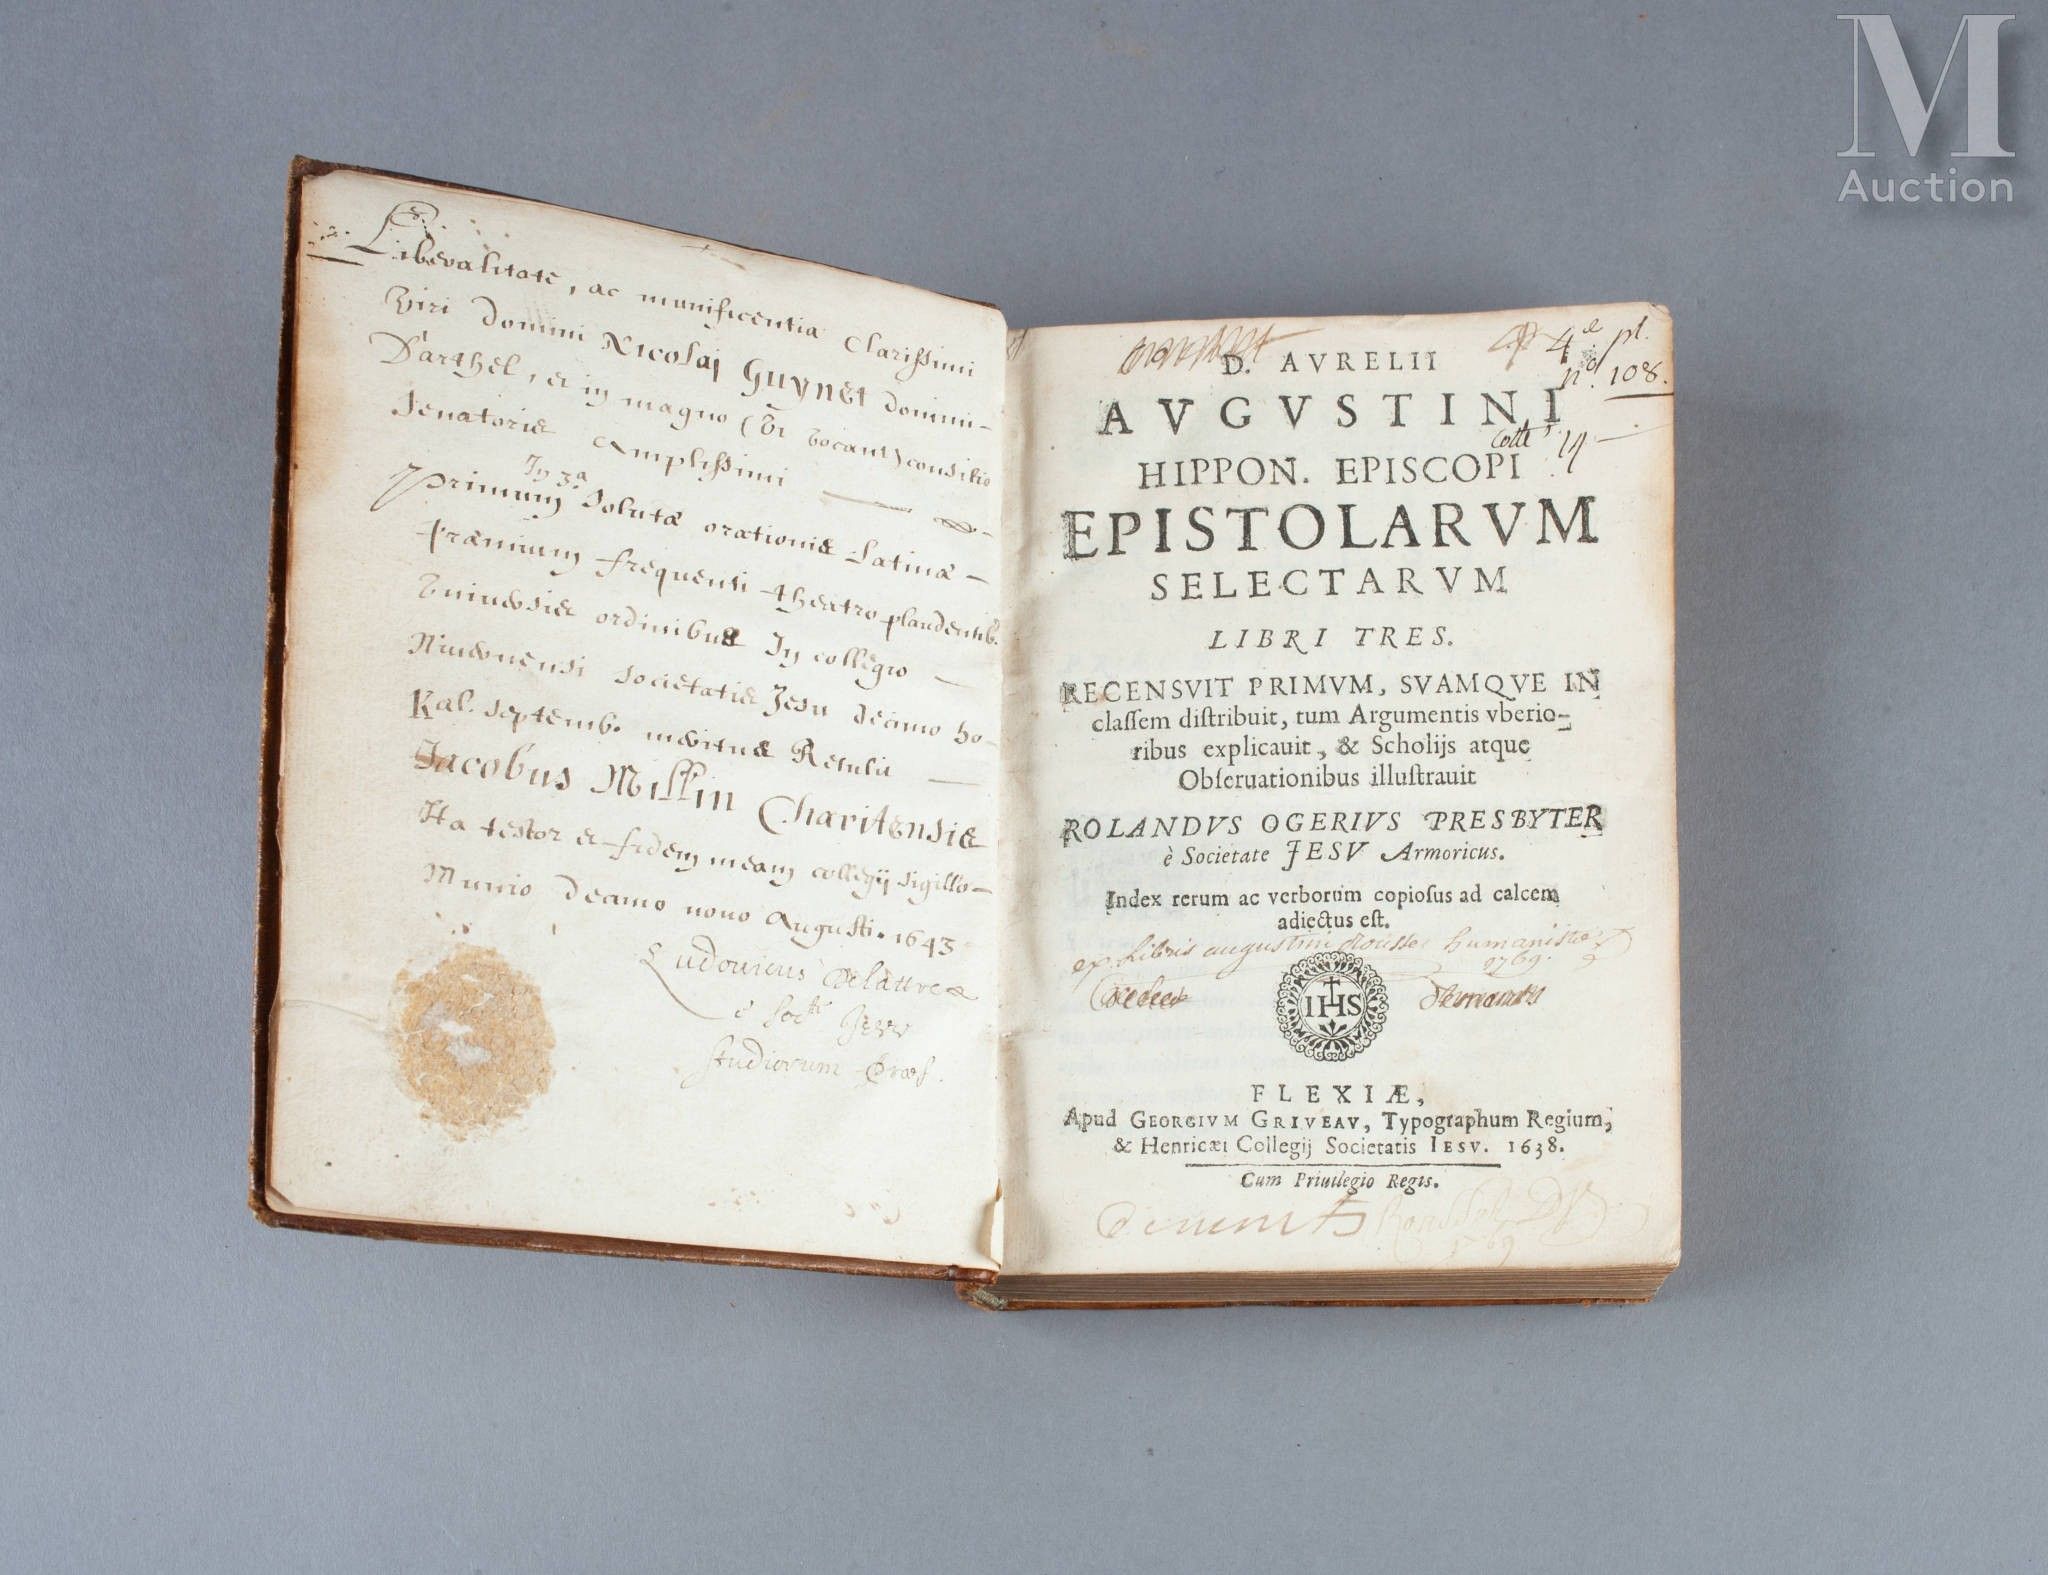 Liberalitate, ac munificentia Clarissimi
Viri Domini Nicolaj Guynet Domini-
D'arthel, & in magno (Vt vocant) consilio
Senatoris Amplissimi
In 3ª
Primum Solutæ orationis Latinæ-
præmium frequenti theatro plaudentib.
Vniuersis ordinibus In collegio
Niuernensi Societatis Jesu decimo 
Kal. Septemb. meritus Retulit
Jacobus Millin Charitensis
Ita testor & fidem meam collegij sigillo-
Munio decimo nono Augusti. 1643
Ludouicus Delattre
è Soc.te Jesu
studiorum Præf.
4e pt.
no. 108.
D. AVRELII
AVGVSTINI
cotte 14
HIPPON. EPISCOPI
EPISTOLARVM
SELECTARVM
LIBRI TRES.
RECENSVIT PRIMVM, SVAMQVE IN
classem distribuit, tum Argumentis vberio-
ribus explicauit, & Scholijs atque
Obseruationibus illustrauit
ROLANDVS OGERIVS PRESBYTER
è Societate JESV Armoricus.
Index rerum ac verborum copiosus ad calcem
adiectus est.
ex libris augustini rousse humanistæ
1769.
IHS
FLEXIÆ,
Apud GEORGIVM GRIVEAV, Typographum Regium,
& Henricæi Collegij Societatis IESV. 1638.
Cum Priuilegio Regis.
1769
M
Auction